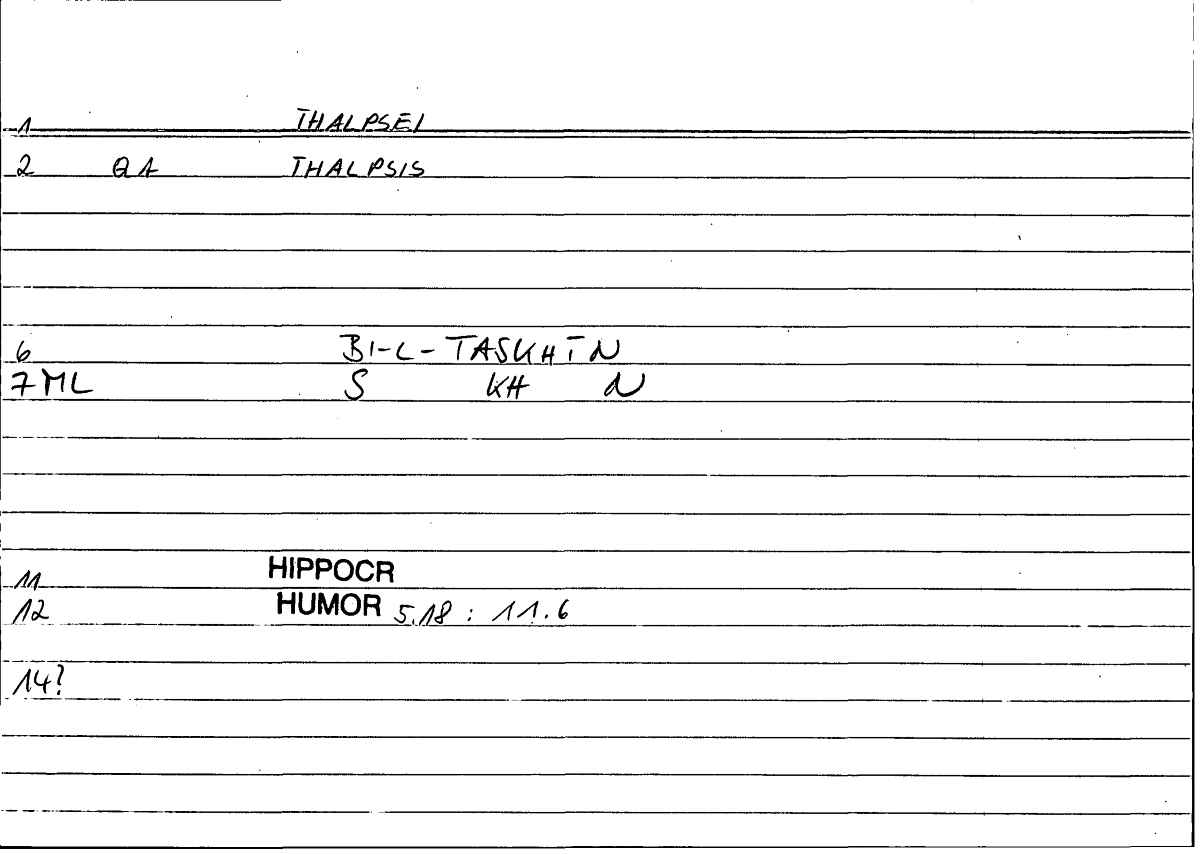 1 THALPSEI
2 QA THALPSIS
6 BI-L-TASKHĪN
7 ML S KH N
11 HIPPOCR
12 HUMOR 5.18 : 11.6
14?